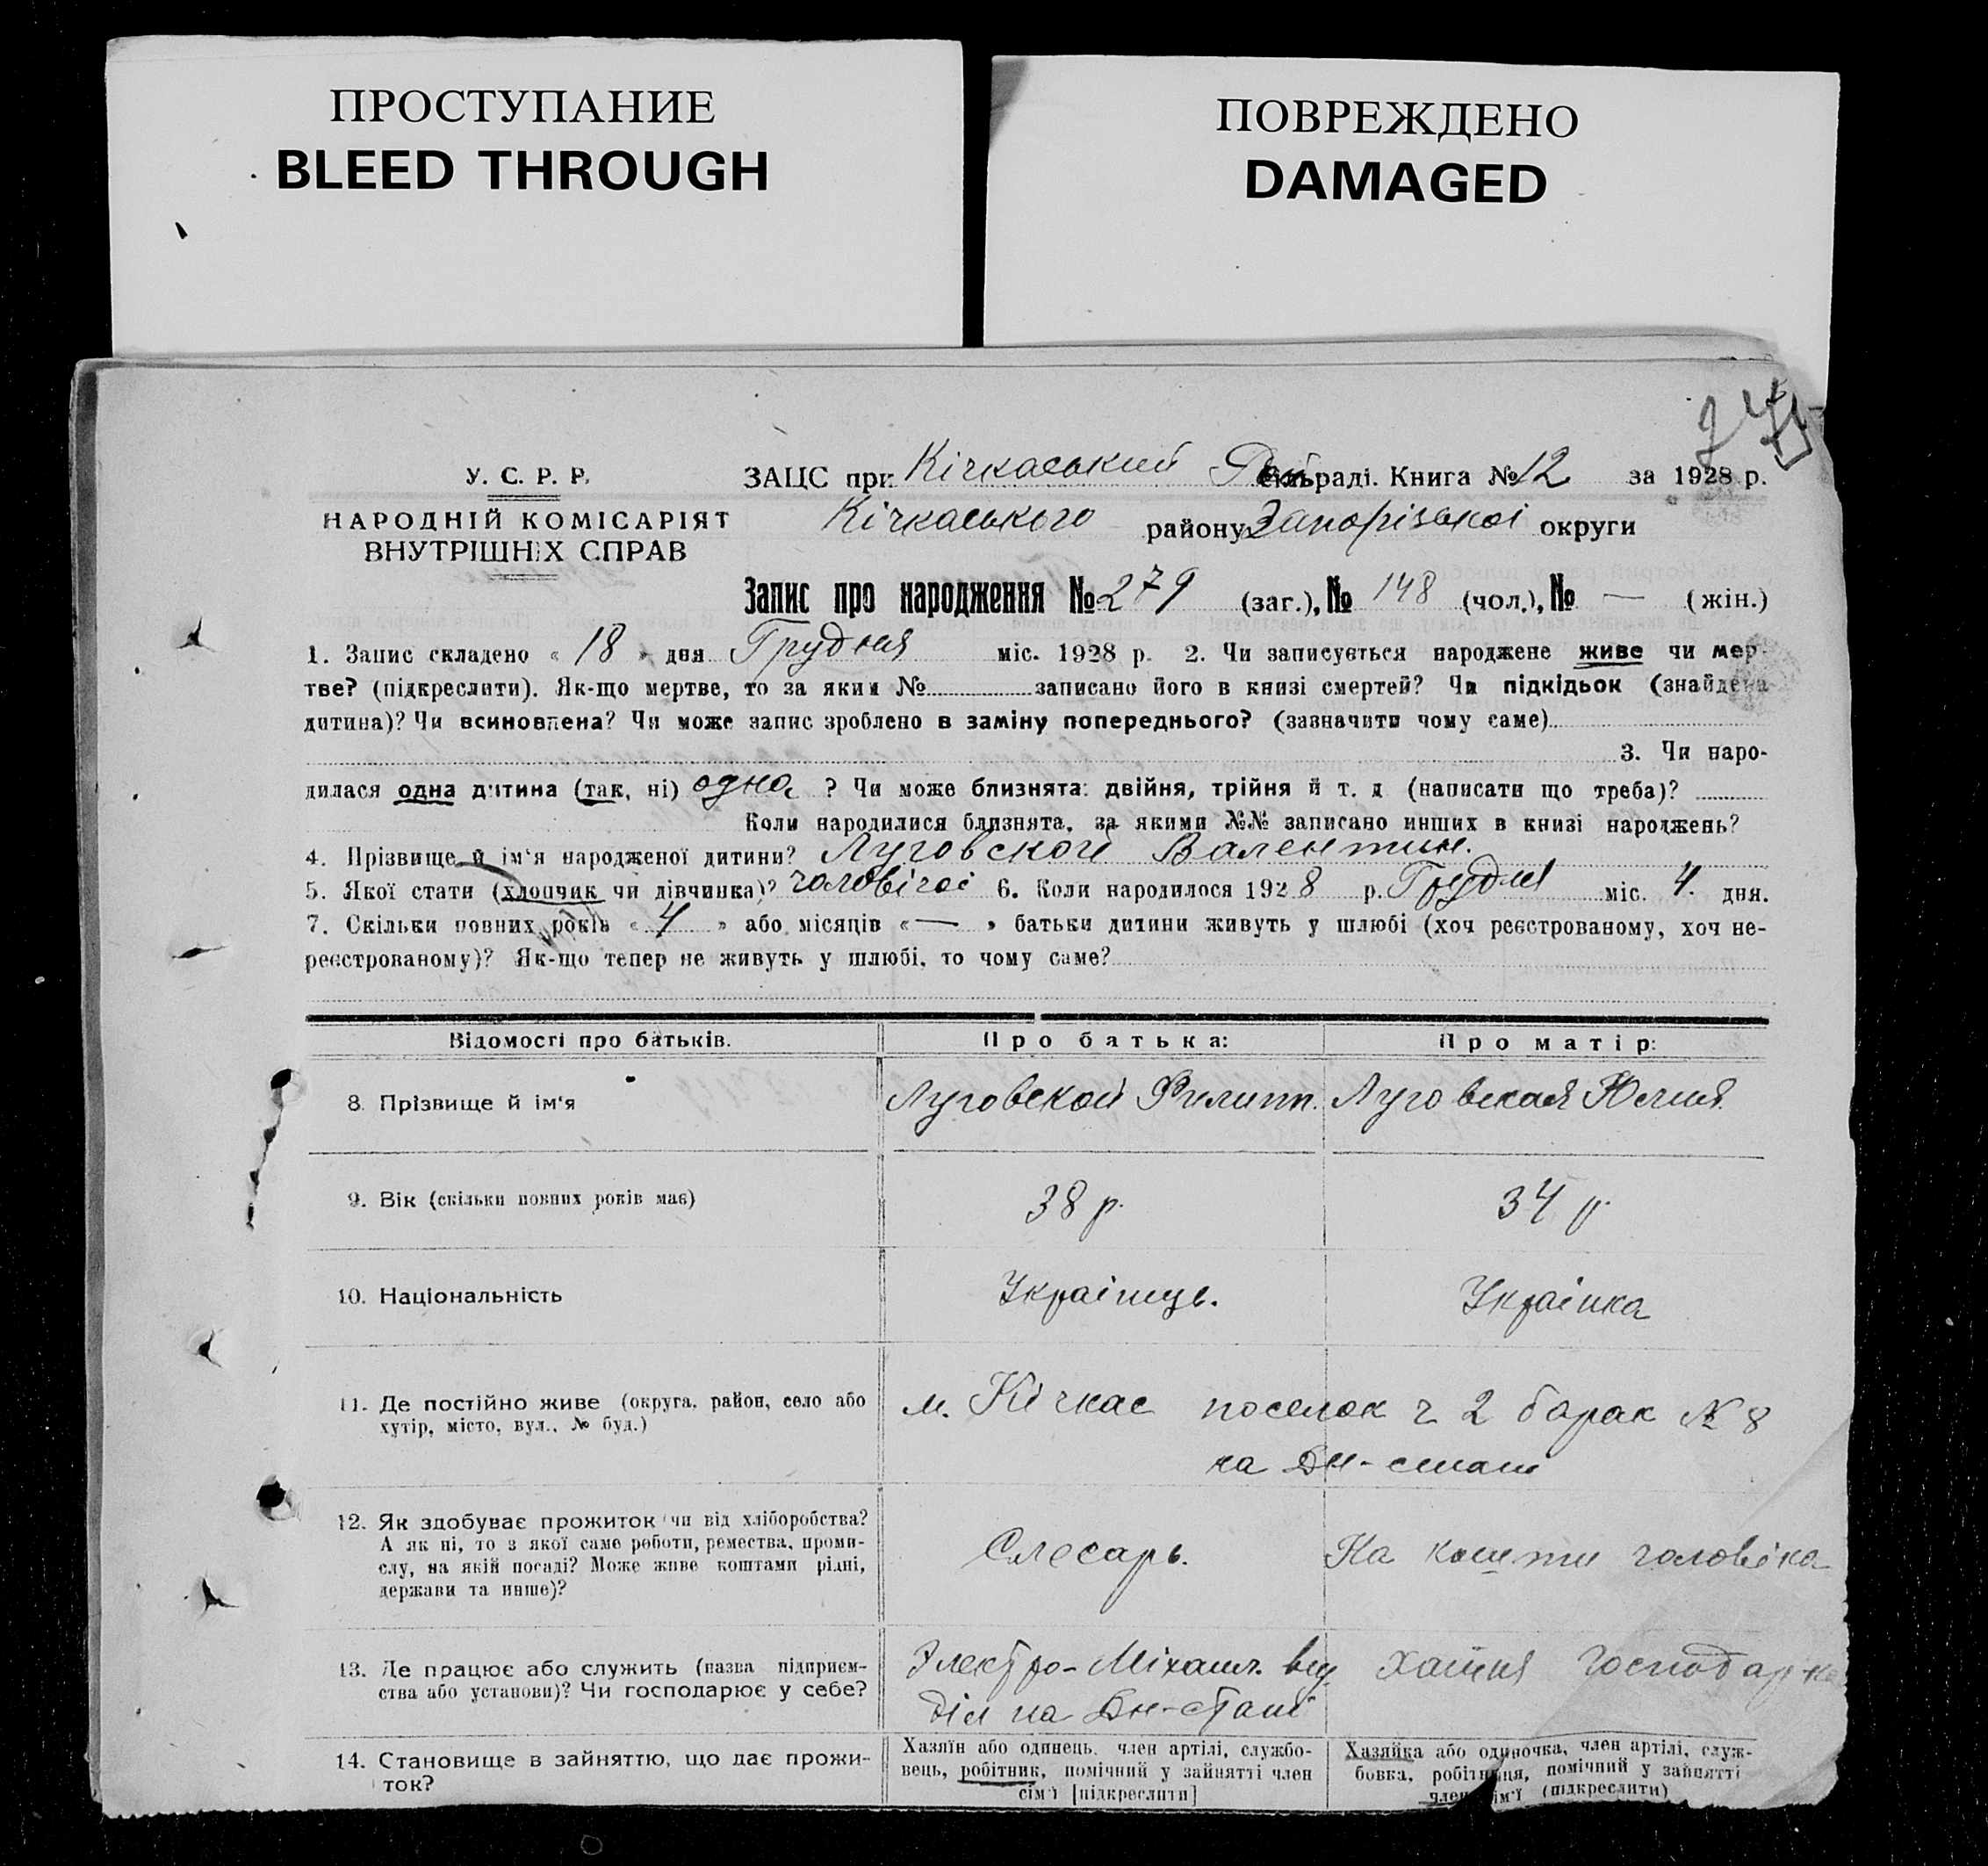 ПРОСТУПАНИЕ
BLEED THROUGH
ПОВРЕЖДЕНО
DAMAGED
У. С. Р. Р.
НАРОДНІЙ КОМІСАРІЯТ
ВНУТРІШНІХ СПРАВ
ЗАЦС при Кічкаський раді. Книга № 12 за 1928 р.
Кічкаського району Запорізької округи
Запис про народження № 279 (заг.), № 148 (чол.), № — (жін.)
1. Запис складено « 18 » дня Грудня міс. 1928 р. 2. Чи записується народжене живе чи мер-
тве? (підкреслити). Як-що мертве, то за яким № записано його в книзі смертей? Чи підкідьок (знайдена
дитина)? Чи всиновлена? Чи може запис зроблено в заміну попереднього? (зазначити чому саме)
3. Чи наро-
дилася одна дитина (так, ні) одна ? Чи може близнята: двійня, трійня й т. д (написати що треба)?
Коли народилися близнята, за якими №№ записано инших в книзі народжень?
4. Прізвище й ім'я народженої дитини? Луговской Валентин.
5. Якої стати (хлопчик чи дівчинка)? чоловічої 6. Коли народилося 1928 р. Грудня міс. 4. дня.
7. Скільки повних років « 4 » або місяців « — » батьки дитини живуть у шлюбі (хоч реєстрованому, хоч не-
реєстрованому)? Як-що тепер не живуть у шлюбі, то чому саме?
Відомості про батьків. Про батька: Про матір:
8. Прізвище й ім'я Луговской Филипп. Луговская Юлия.
9. Вік (скільки повних років має) 38 р. 34 р.
10. Національність Українець. Українка
11. Де постійно живе (округа, район, село або м. Кічкас поселок ч 2 барак № 8
хутір, місто, вул., № буд.) на Дн-стані
12. Як здобуває прожиток чи від хліборобства?
А як ні, то з якої саме роботи, ремества, проми-
слу, на якій посаді? Може живе коштами рідні,
держави та инше)?
Слесарь. На кошти чоловіка
13. Де працює або служить (назва підприєм-
ства або установи)? Чи господарює у себе?
Электро-Міханич. від
діл на Дн-стані
Хатня Господарка
14. Становище в зайняттю, що дає прожи-
ток?
Хазяїн або одинець, член артілі, службо-
вець, робітник, помічний у зайнятті член
сім'ї [підкреслити]
Хазяйка або одиночка, член артілі, служ-
бовка, робітниця, помічний у зайнятті
член сім'ї (підкреслити)